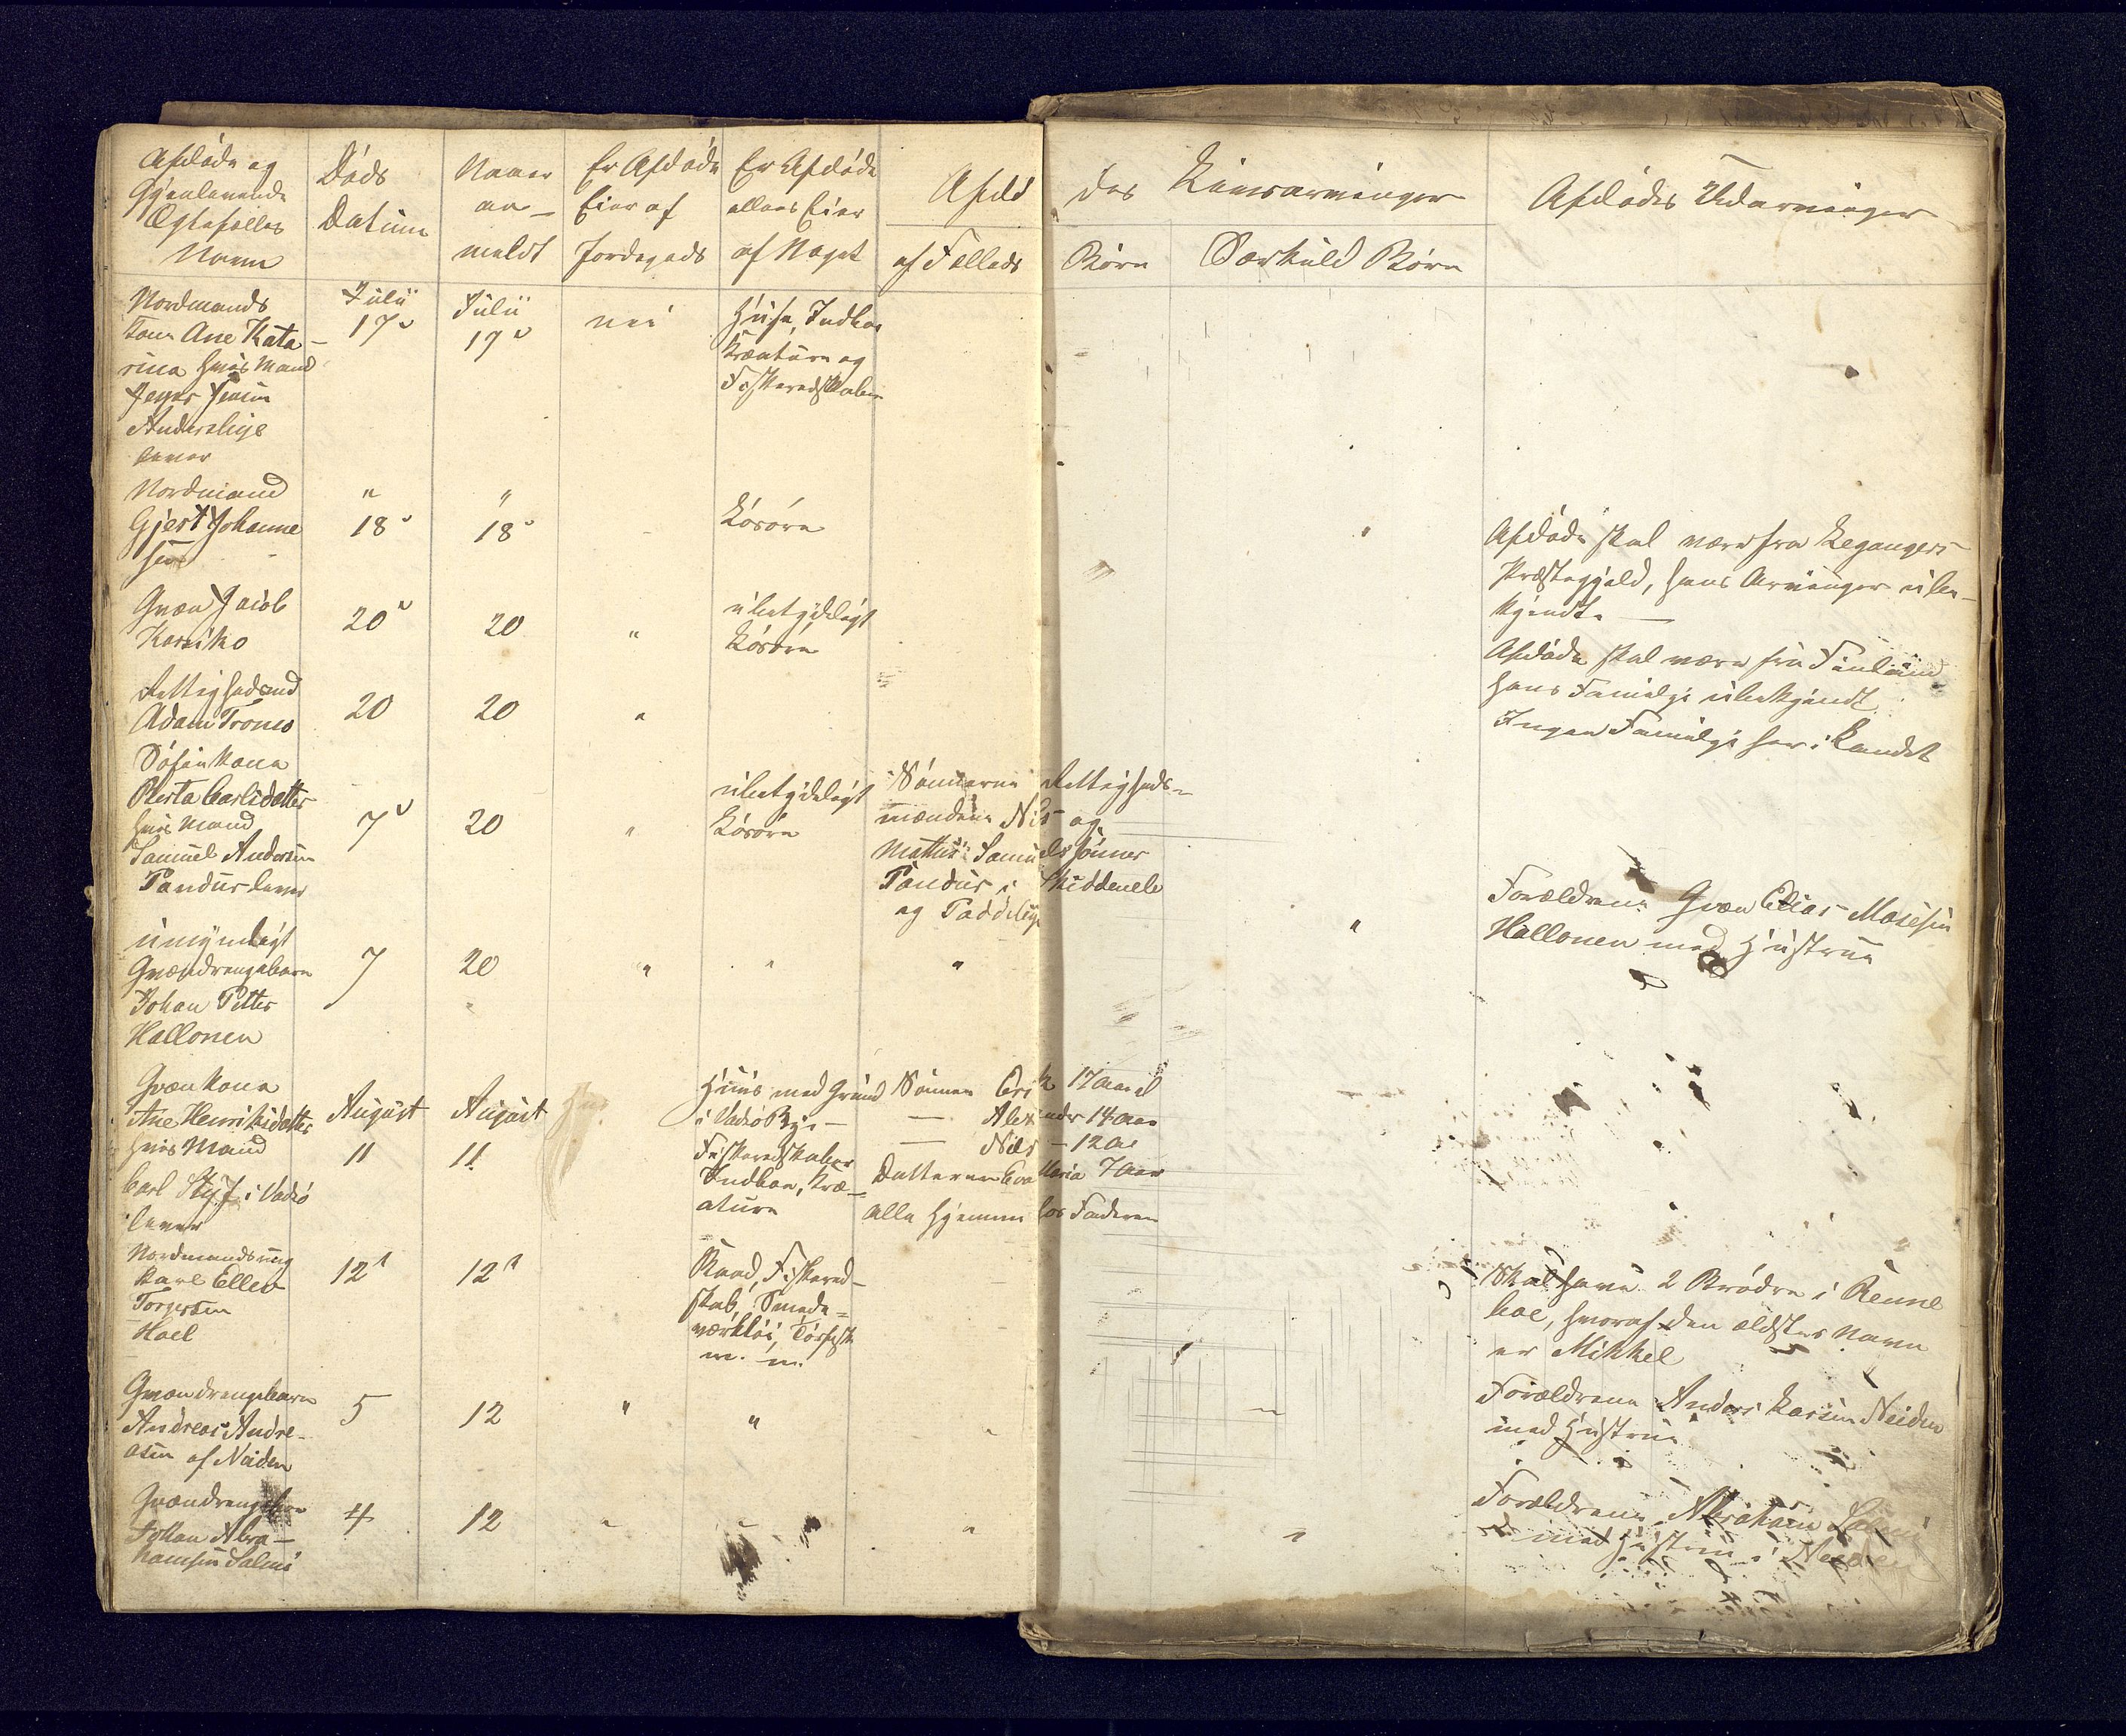 Afdøde og
Gjenlevende
Ægtefælles
Navn
Døds
Datum
Naar
an-
meldt
Er Afdøde
Eier af
Jordegods
Er Afdøde
ellers Eier
af Noget
Afdø des Livsarvinger
af Fælleds Børn
Særkuld Børn
Afdødes Udarvinger
Nordmands
kone Ane Kata-
rina hvis Mand
Anders
lever
Julii
17de
Julii
19de
nei
Huse, Indbo
Kreature og
Fiskeredskaber
Nordmand
Gjert Johanne
sen
"
18
"
18
Løsøre
Afdøde skal være fra
Præstegjeld, hans Arvinger ube-
kjendt.
Qvæn Jacob
Karsiko
20
20
"
ubetydeligt
Løsøre
Afdøde skal være fra Finland
hans Familje ubekjendt
Rettighedsmd
Adam Trones
20
20
"
Ingen Familje her i Landet
Søfinkone
Berta Carlsdatter
hvis Mand
Samuel Andersen
Pandur lever
7
20
"
ubetydeligt
Løsøre
Sønnerne Rettigheds-
mændene Nils og
Mathis Samuelssønner
Pandur i
og Paddeby
umyndigt
Qvændrengebarn
Johan Petter
Hallonen
7
20
"
"
"
"
Forældrene Qvæn Elias Mosesen
Hallonen med Hustrue
Qvænkone
Ane Henriksdatter
hvis Mand
Carl Styf i Vadsø
lever
August
11
August
11
Huus med Grund
i Vadsø By -
Fiskeredskaber
Indboe, Kre-
ature
Sønnen Erik 17 Aar
— Alexander 14 Aar
— Nils - 12 Aar
Datteren Eva Maria 7 Aar
Alle Hjemme hos Faderen
Nordmands ung
karl Ellev
Torgersen
Hoel
12
12
Baad, Fiskered-
skab, Smede-
værktøi, Tørfisk
m. m.
Skal have 2 Brødre i Renne
boe, hvoraf den ældstes Navn
er Mikkel
Qvændrengebarn
Andreas Andre-
asen af Neiden
5
12
"
"
"
Forældrene Anders Neiden
med Hustrue
Qvændrengebarn
Johan Abra-
hamsen Salmi
4
12
"
"
"
"
Forældrene Abraham Salmi
med Hustrue i Neiden